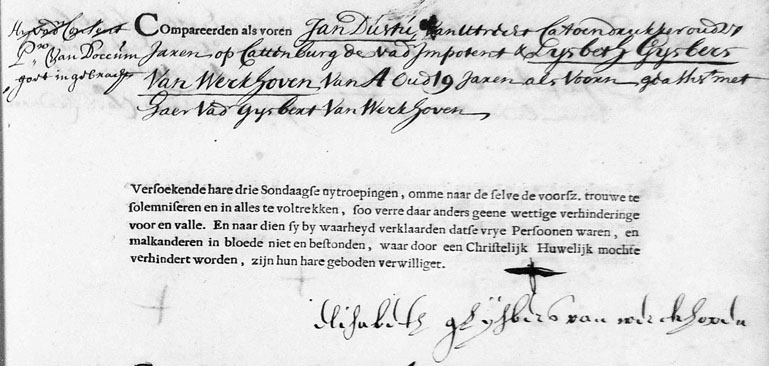 Hy vad Consent
Pro Van Doccum
goet in gebracht
Compareerden als voren Jan Dusti van Utrecht Catoendrukker oud 27
Jaren op Cattenburg de vad Impotent & Lysbeth Gysbers
Van Werkhoven Van A Oud 19 Jaren als Voorn geast met
haer Vad Gysbert Van Werkhoven
Versoekende hare drie Sondaagse uytroepingen, omme naar de selve de voorsz. trouwe te
solemniseren en in alles te voltrekken, soo verre daar anders geene wettige verhinderinge
voor en valle. En naar dien sy by waarheyd verklaarden datse vrye Persoonen waren, en
malkanderen in bloede niet en bestonden, waar door een Christelijk Huwelijk mochte
verhindert worden, zijn hun hare geboden verwilliget.
elisabeth gijsbers van werckhoven